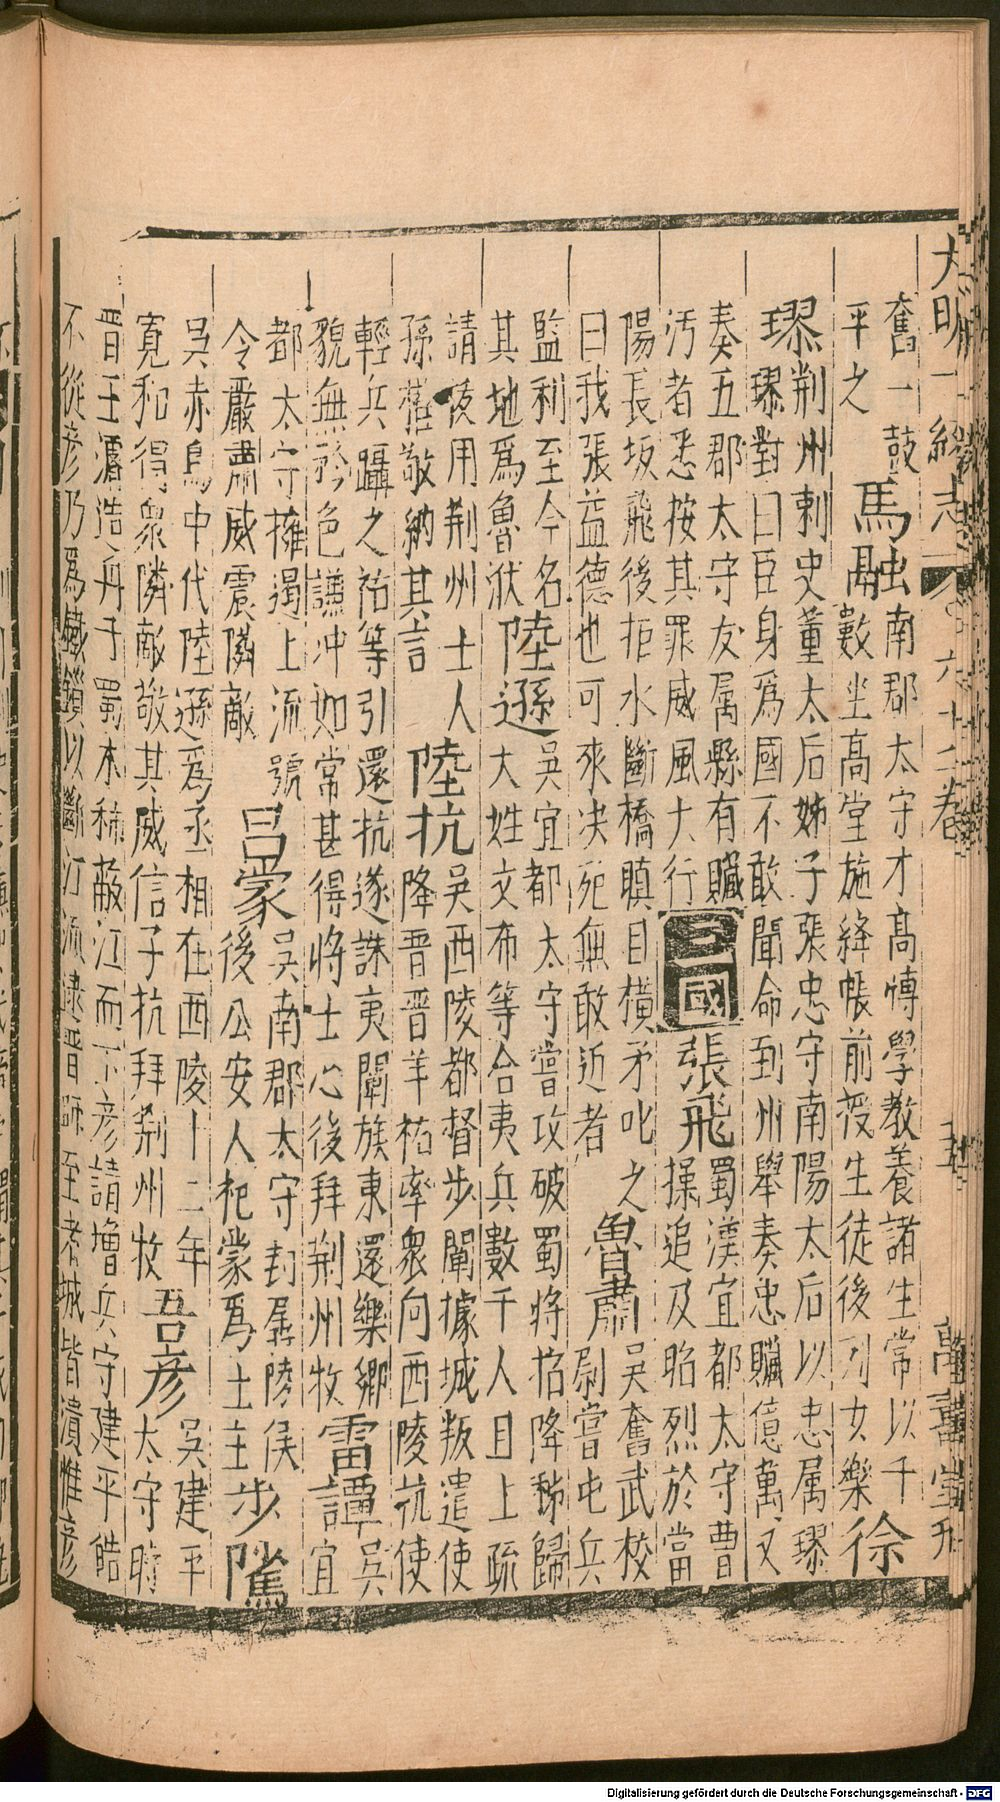 大明一統志 六十二卷 五 萬壽堂刋
奮一鼓馬融南郡太守才高愽學教養諸生常以千
平之 數坐高堂施絳帳前授生徒後列女樂徐
璆荆州刺史董太后姊子張忠守南陽太后以忠属璆
璆對曰臣身爲國不敢聞命到州舉奏忠贓億萬又
奏五郡太守友属縣有贓 蜀漢宜都太守曹
汚者悉按其罪威風大行三國張飛操追及昭烈於當
陽長坂飛後拒水斷橋瞋目横矛叱之 吳奮武校
曰我張益德也可來决死無敢近者魯肅尉嘗屯兵
監利至今名 吳宜都太守嘗攻破蜀將招降秭歸
其地爲魯洑陸遜大姓文布等合夷兵數千人且上疏
請後用荆州士人 吳西陵都督步闡據城叛遣使
孫權敬納其言陸抗降晋晋羊祜率衆向西陵抗使
輕兵躡之祜等引還抗遂誅夷闡族東還樂鄉 吳
貌無矜色謙冲如常甚得將士心後拜荆州牧雷譚宜
都太守擁遏上流號 吳南郡太守封孱陵侯
令嚴肅威震隣敵呂蒙後公安人祀蒙爲土主步隲
吳赤烏中代陸遜爲丞相在西陵二年 吳建平
寛和得衆隣敵敬其威信子抗拜荆州牧吾彦太守時
晋王濬造舟于蜀木柹蔽江而下彦請增兵守建平皓
不從彦乃爲鐵鎖以斷江流逮晋師至者城皆潰惟彦
Digitalisierung gefördert durch die Deutsche Forschungsgemeinschaft - DFG